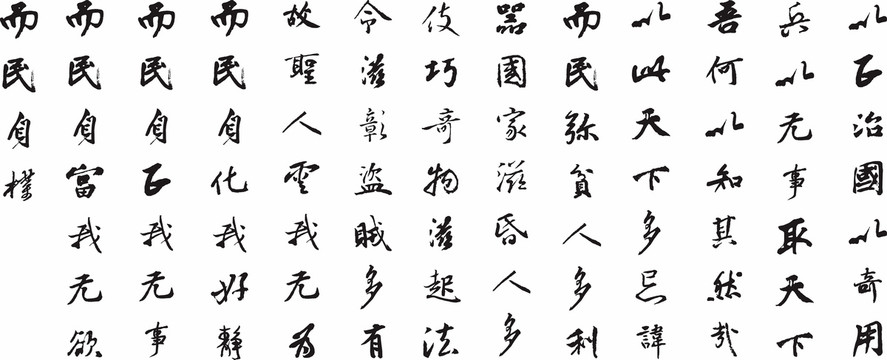 以正治國以奇用
兵以无事取天下
吾何以知其然哉
以此天下多忌諱
而民弥貧人多利
器國家滋昏人多
伎巧奇物滋起法
令滋彰盜賊多有
故聖人雲我无為
而民自化我好靜
而民自正我无事
而民自富我无欲
而民自樸